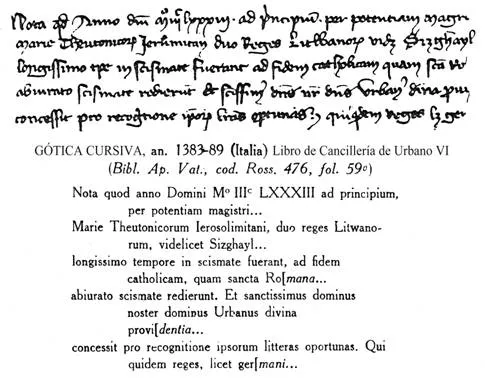 Nota qd Anno dni Mº IIIc lxxxiij · ad principium · per potentiam magri
Marie Theutonicor Jerlimitan duo Reges Litwanor vidz Sizghayl
longissimo tpe in scismate fuerant ad fidem catholicam quam scta Ro
abiurato scismate redierut Et scissim dns nr dns Urban diuina proui
concessit pro recognitione ipsor lras oportunas Qui quidem reges lz ger
GÓTICA CURSIVA, an. 1383-89 (Italia) Libro de Cancillería de Urbano VI
(Bibl. Ap. Vat., cod. Ross. 476, fol. 59º)
Nota quod anno Domini Mº IIIᶜ LXXXIII ad principium,
per potentiam magistri...
Marie Theutonicorum Ierosolimitani, duo reges Litwano-
rum, videlicet Sizghayl...
longissimo tempore in scismate fuerant, ad fidem
catholicam, quam sancta Ro[mana...
abiurato scismate redierunt. Et sanctissimus dominus
noster dominus Urbanus divina
provi[dentia...
concessit pro recognitione ipsorum litteras oportunas. Qui
quidem reges, licet ger[mani...